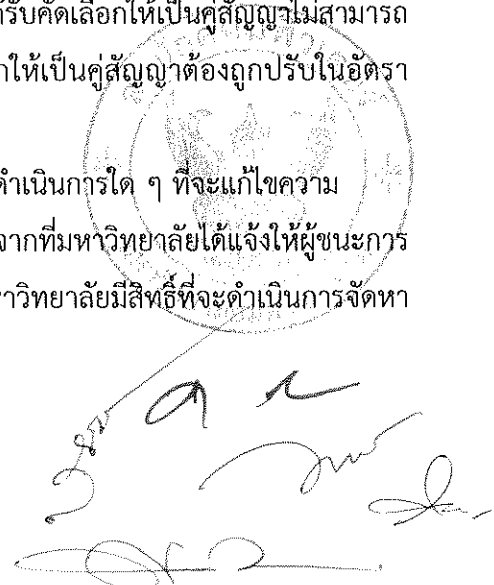 รับคัดเลือกให้เป็นคู่สัญญาไม่สามารถ
ให้เป็นคู่สัญญาต้องถูกปรับในอัตรา
ดำเนินการใด ๆ ที่จะแก้ไขความ
จากที่มหาวิทยาลัยได้แจ้งให้ผู้ชนะการ
าวิทยาลัยมีสิทธิ์ที่จะดำเนินการจัดหา